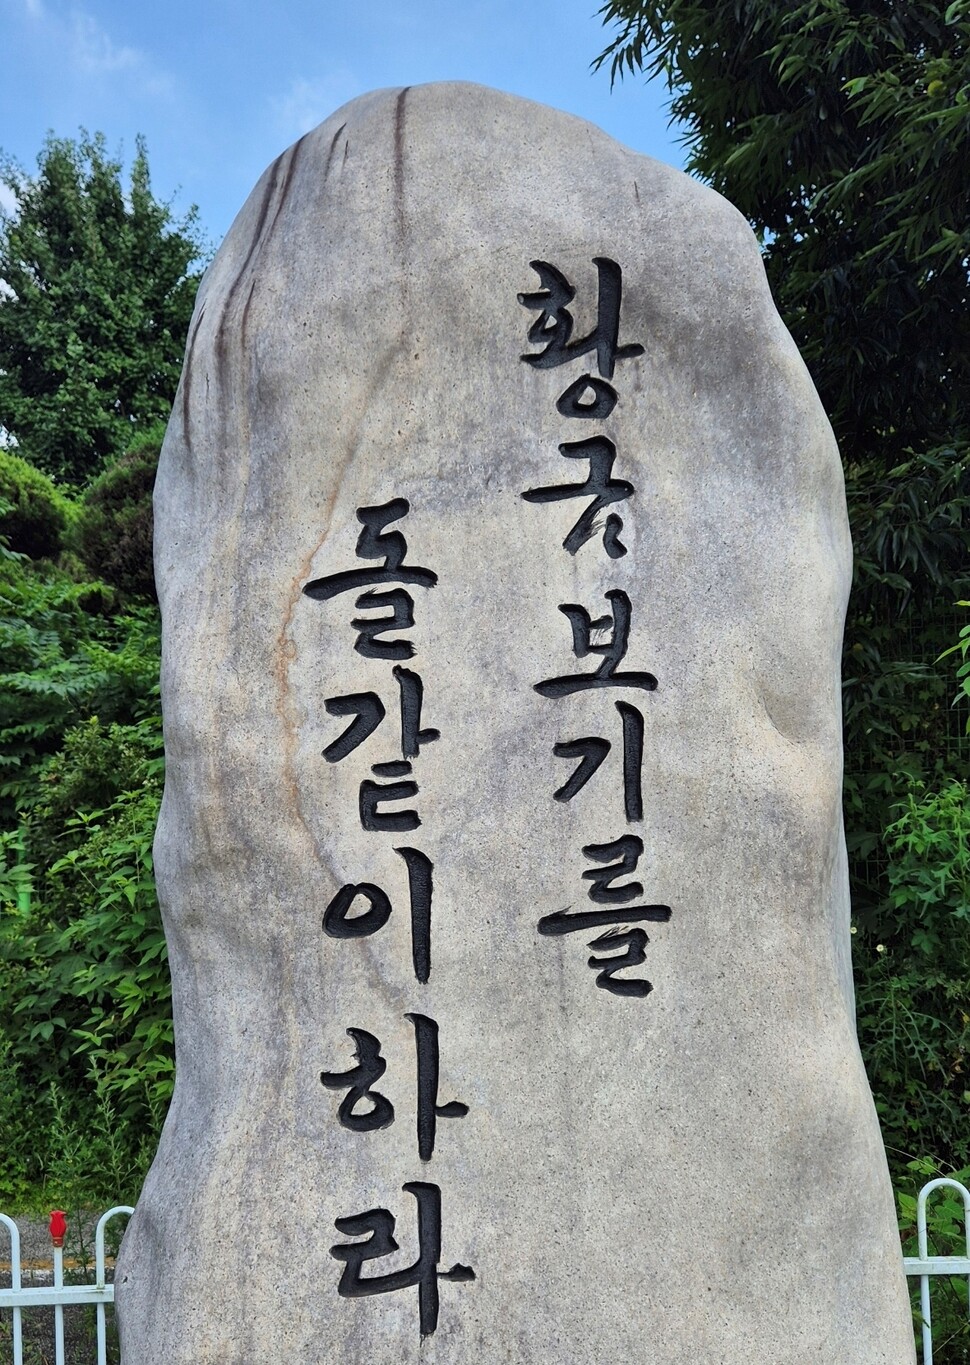 황금보기를
돌같이하라